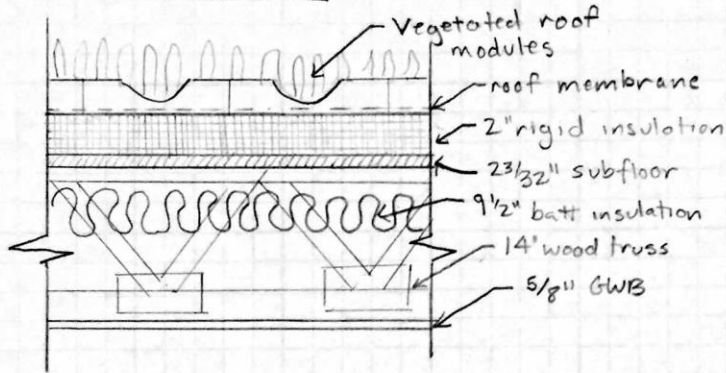 Vegetated roof
modules
roof membrane
2" rigid insulation
23/32" subfloor
9 1/2" batt insulation
14' wood truss
5/8" GWB